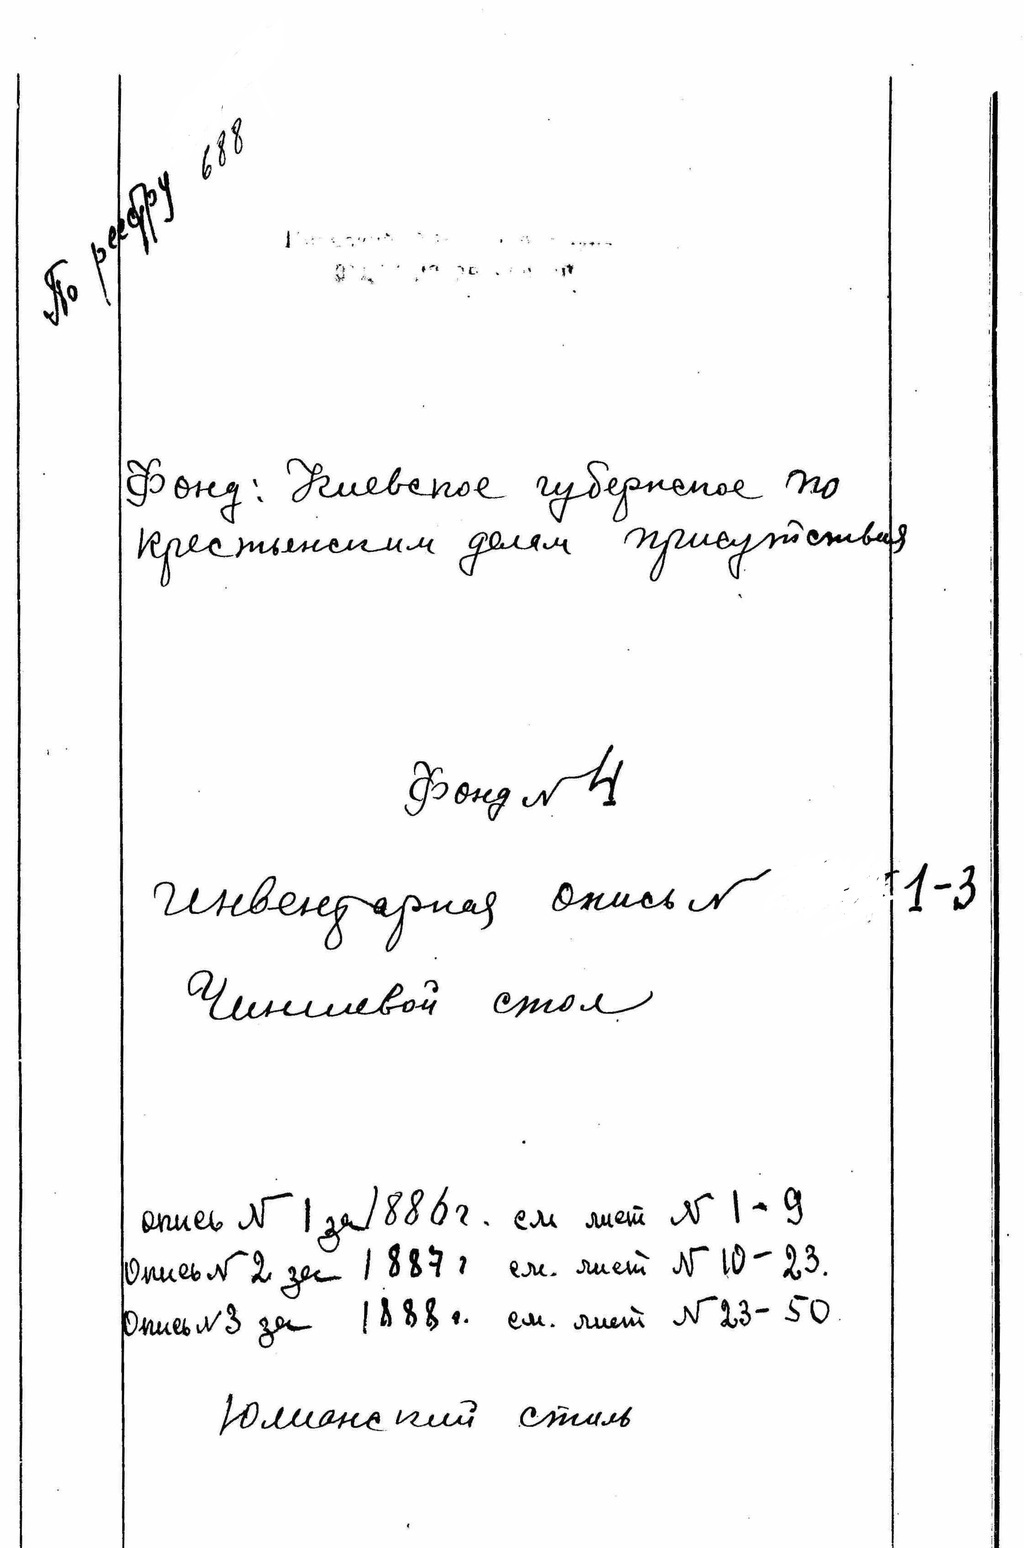 По реестру 688
Фонд: Киевское губернское по
крестьянским делам присутствия
Фонд N 4
Инвентарная опись N 1-3
Чиншевой стол
опись N 1 за 1886 г. см лист N 1-9
Опись N 2 за 1887 г см. лист N 10-23.
Опись N 3 за 1888 г. см. лист N 23-50
Юлианский стиль